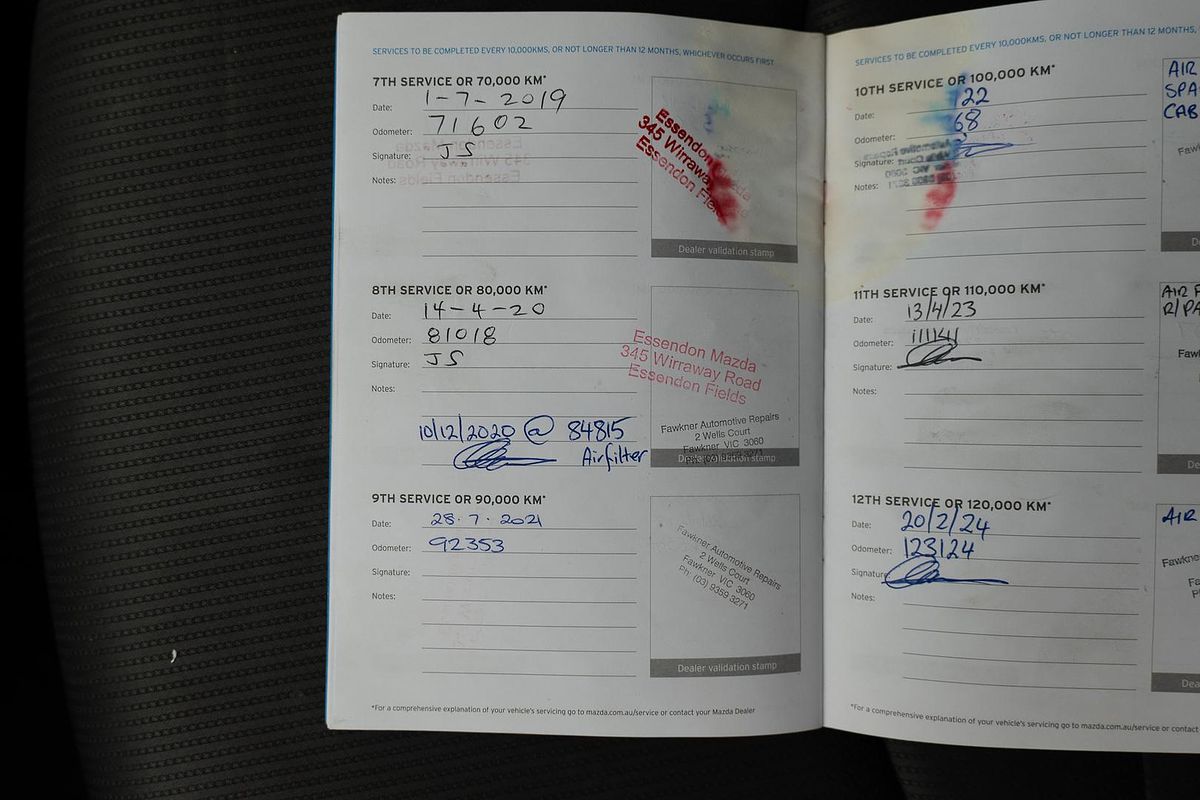 SERVICES TO BE COMPLETED EVERY 10,000KMS, OR NOT LONGER THAN 12 MONTHS, WHICHEVER OCCURS FIRST
7TH SERVICE OR 70,000 KM*
Date: 1-7-2019
Odometer: 71602
Signature: JS
Notes:
Essendon Mazda
345 Wirraway
Essendon
Dealer validation stamp
8TH SERVICE OR 80,000 KM*
Date: 14-4-20
Odometer: 81018
Signature: JS
Notes:
10/12/2020 @ 84815
Airfilter
Essendon Mazda
345 Wirraway Road
Essendon Fields
Fawkner Automotive Repairs
2 Wells Court
Fawkner VIC 3060
Ph: (03) 9359 3271
Dealer validation stamp
9TH SERVICE OR 90,000 KM*
Date: 28.7.2021
Odometer: 92353
Signature:
Notes:
Fawkner Automotive Repairs
2 Wells Court
Fawkner VIC 3060
Ph: (03) 9359 3271
Dealer validation stamp
*For a comprehensive explanation of your vehicle's servicing go to mazda.com.au/service or contact your Mazda Dealer
SERVICES TO BE COMPLETED EVERY 10,000KMS, OR NOT LONGER THAN 12 MONTHS,
10TH SERVICE OR 100,000 KM*
Date: 22
Odometer: 68
Signature:
Notes:
AIR
11TH SERVICE OR 110,000 KM*
Date: 13/4/23
Odometer:
Signature:
Notes:
AIR
12TH SERVICE OR 120,000 KM*
Date: 20/2/24
Odometer: 123124
Signature:
Notes:
AIR
*For a comprehensive explanation of your vehicle's servicing go to mazda.com.au/service or contact